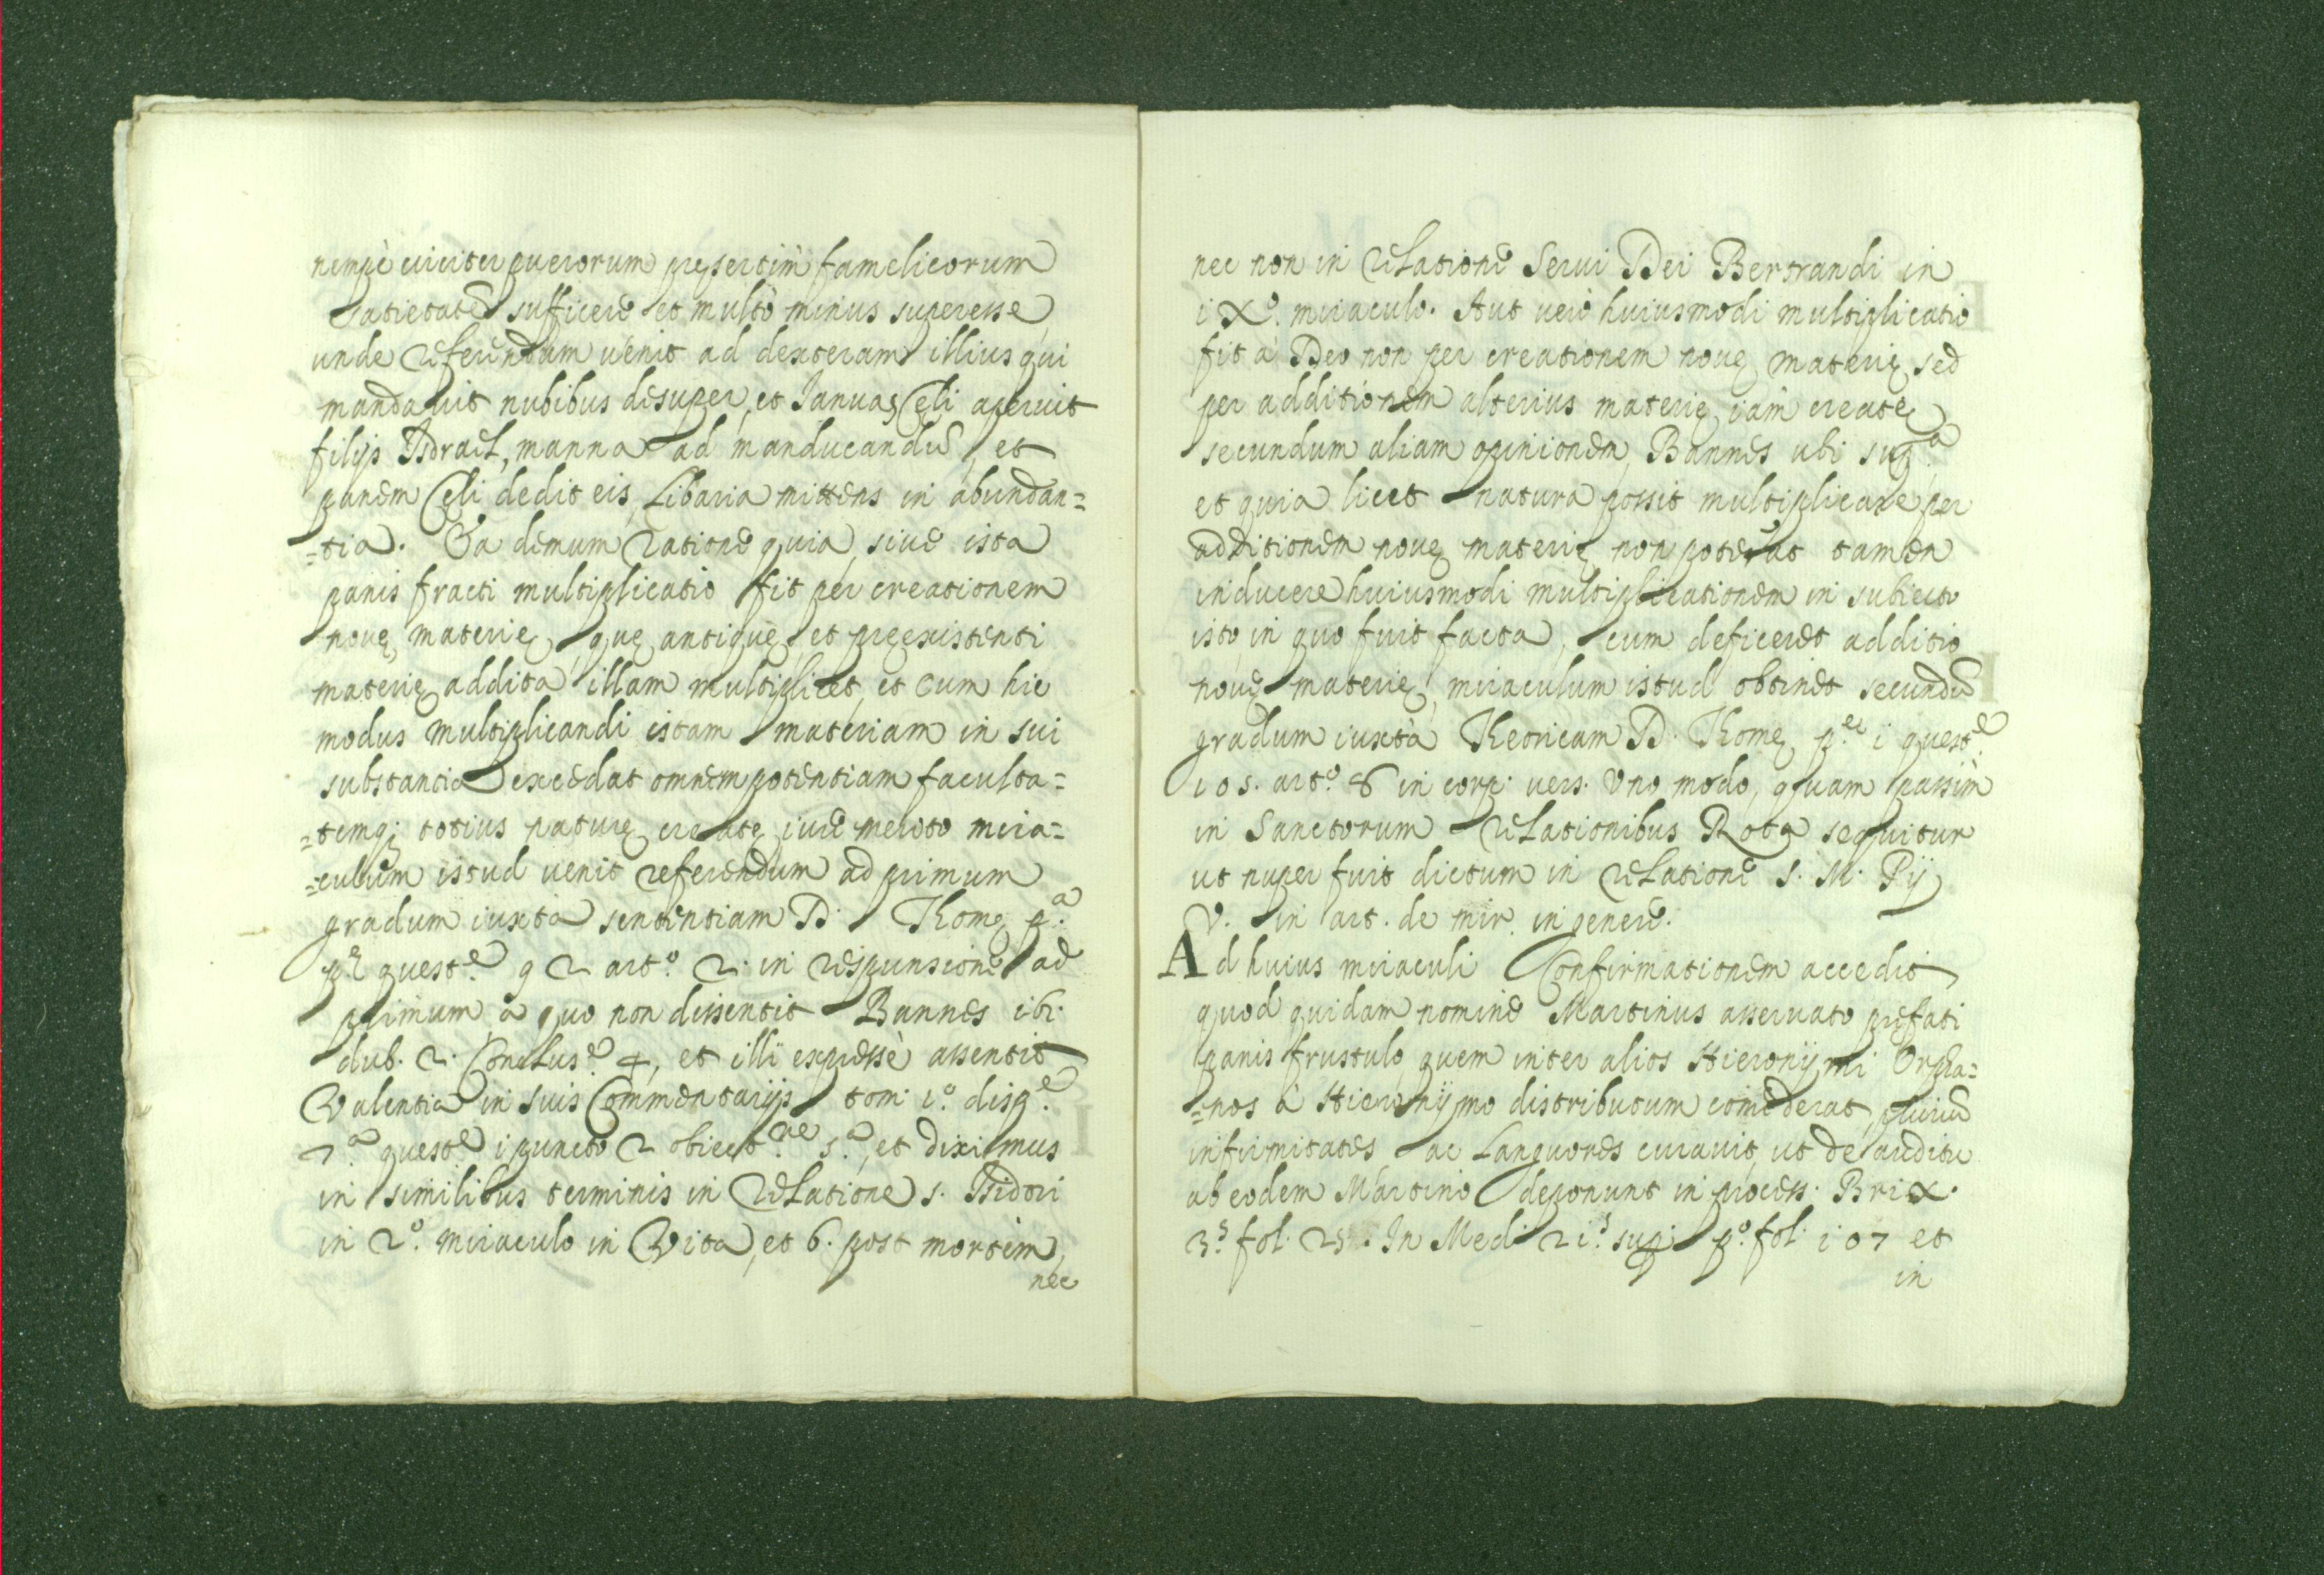 nempè circiter puerorum pręsertim famelicorum
satietatē sufficere et multò minus superesse
unde referendum uenit ad dexteram illius qui
mandauit nubibus desuper, et Ianuas Cęli aperuit
filijs Isdrael, manna ad manducandū, et
panem Cęli dedit eis, Cibaria mittens in abundan=
=tia. Ea demum ratione quia, siue ista
panis fracti multiplicatio fit per creationem
nouę materię, quę antiquę, et pręexistenti
materię addita illam multiplicet, et cum hic
modus multiplicandi istam materiam in sui
substantia excedat omnem potentiam faculta=
=temq; totius naturę creatę iure merito mira=
=culum istud uenit referendum ad primum
gradum iuxta sententiam D. Thomę p.ª
p.ę quest.e 92 art.º 2. in responsione ad
primum à quo non dissentit Bannes ibi.
dub. 2. Conclus.e 4, et illi expressè assentit
Valentia in suis Commentarijs tom. i.º disp.e
7.ª quest.e i puncto 2 obiect.ne 5.ª, et diximus
in similibus terminis in relatione s. Isidori
in 2.º miraculo in Vita, et 6. post mortem,
nec
nec non in relatione Serui Dei Bertrandi in
iX.º miraculo. Aut uerò huiusmodi multiplicatio
fit à Deo non per creationem nouę materię sed
per additionem alterius materię iàm creatę
secundum aliam opinionem Bannes ubi sup.ª
et quia licet natura possit multiplicare per
additionem nouę materię non poterat tamen
inducere huiusmodi multiplicationem in subiecto
isto, in quo fuit facta, cum deficeret additio
nouę materię, miraculum istud obtinet secundū
gradum iuxtà Theoricam D. Thomę p.ę i quest.e
105. art.º 8 in corp. vers. Uno modo, quam passim
in Sanctorum relationibus Rota sequitur
ut nuper fuit dictum in relatione S. M. Pij
V. in art. de mir. in genere.
Ad huius miraculi Confirmationem accedit
quod quidam nomine Martinus asseruato pręfati
panis frustulo, quem inter alios Hieronijmi Orpha=
=nos à Hieronijmo distributum comederat, pluriū
infirmitates ac Languores curauit, ut de auditu
ab eodem Martino deponunt in process. Brix.
3.s fol. 25. In Medi 2i.s sup. p.º fol. i07 et
in